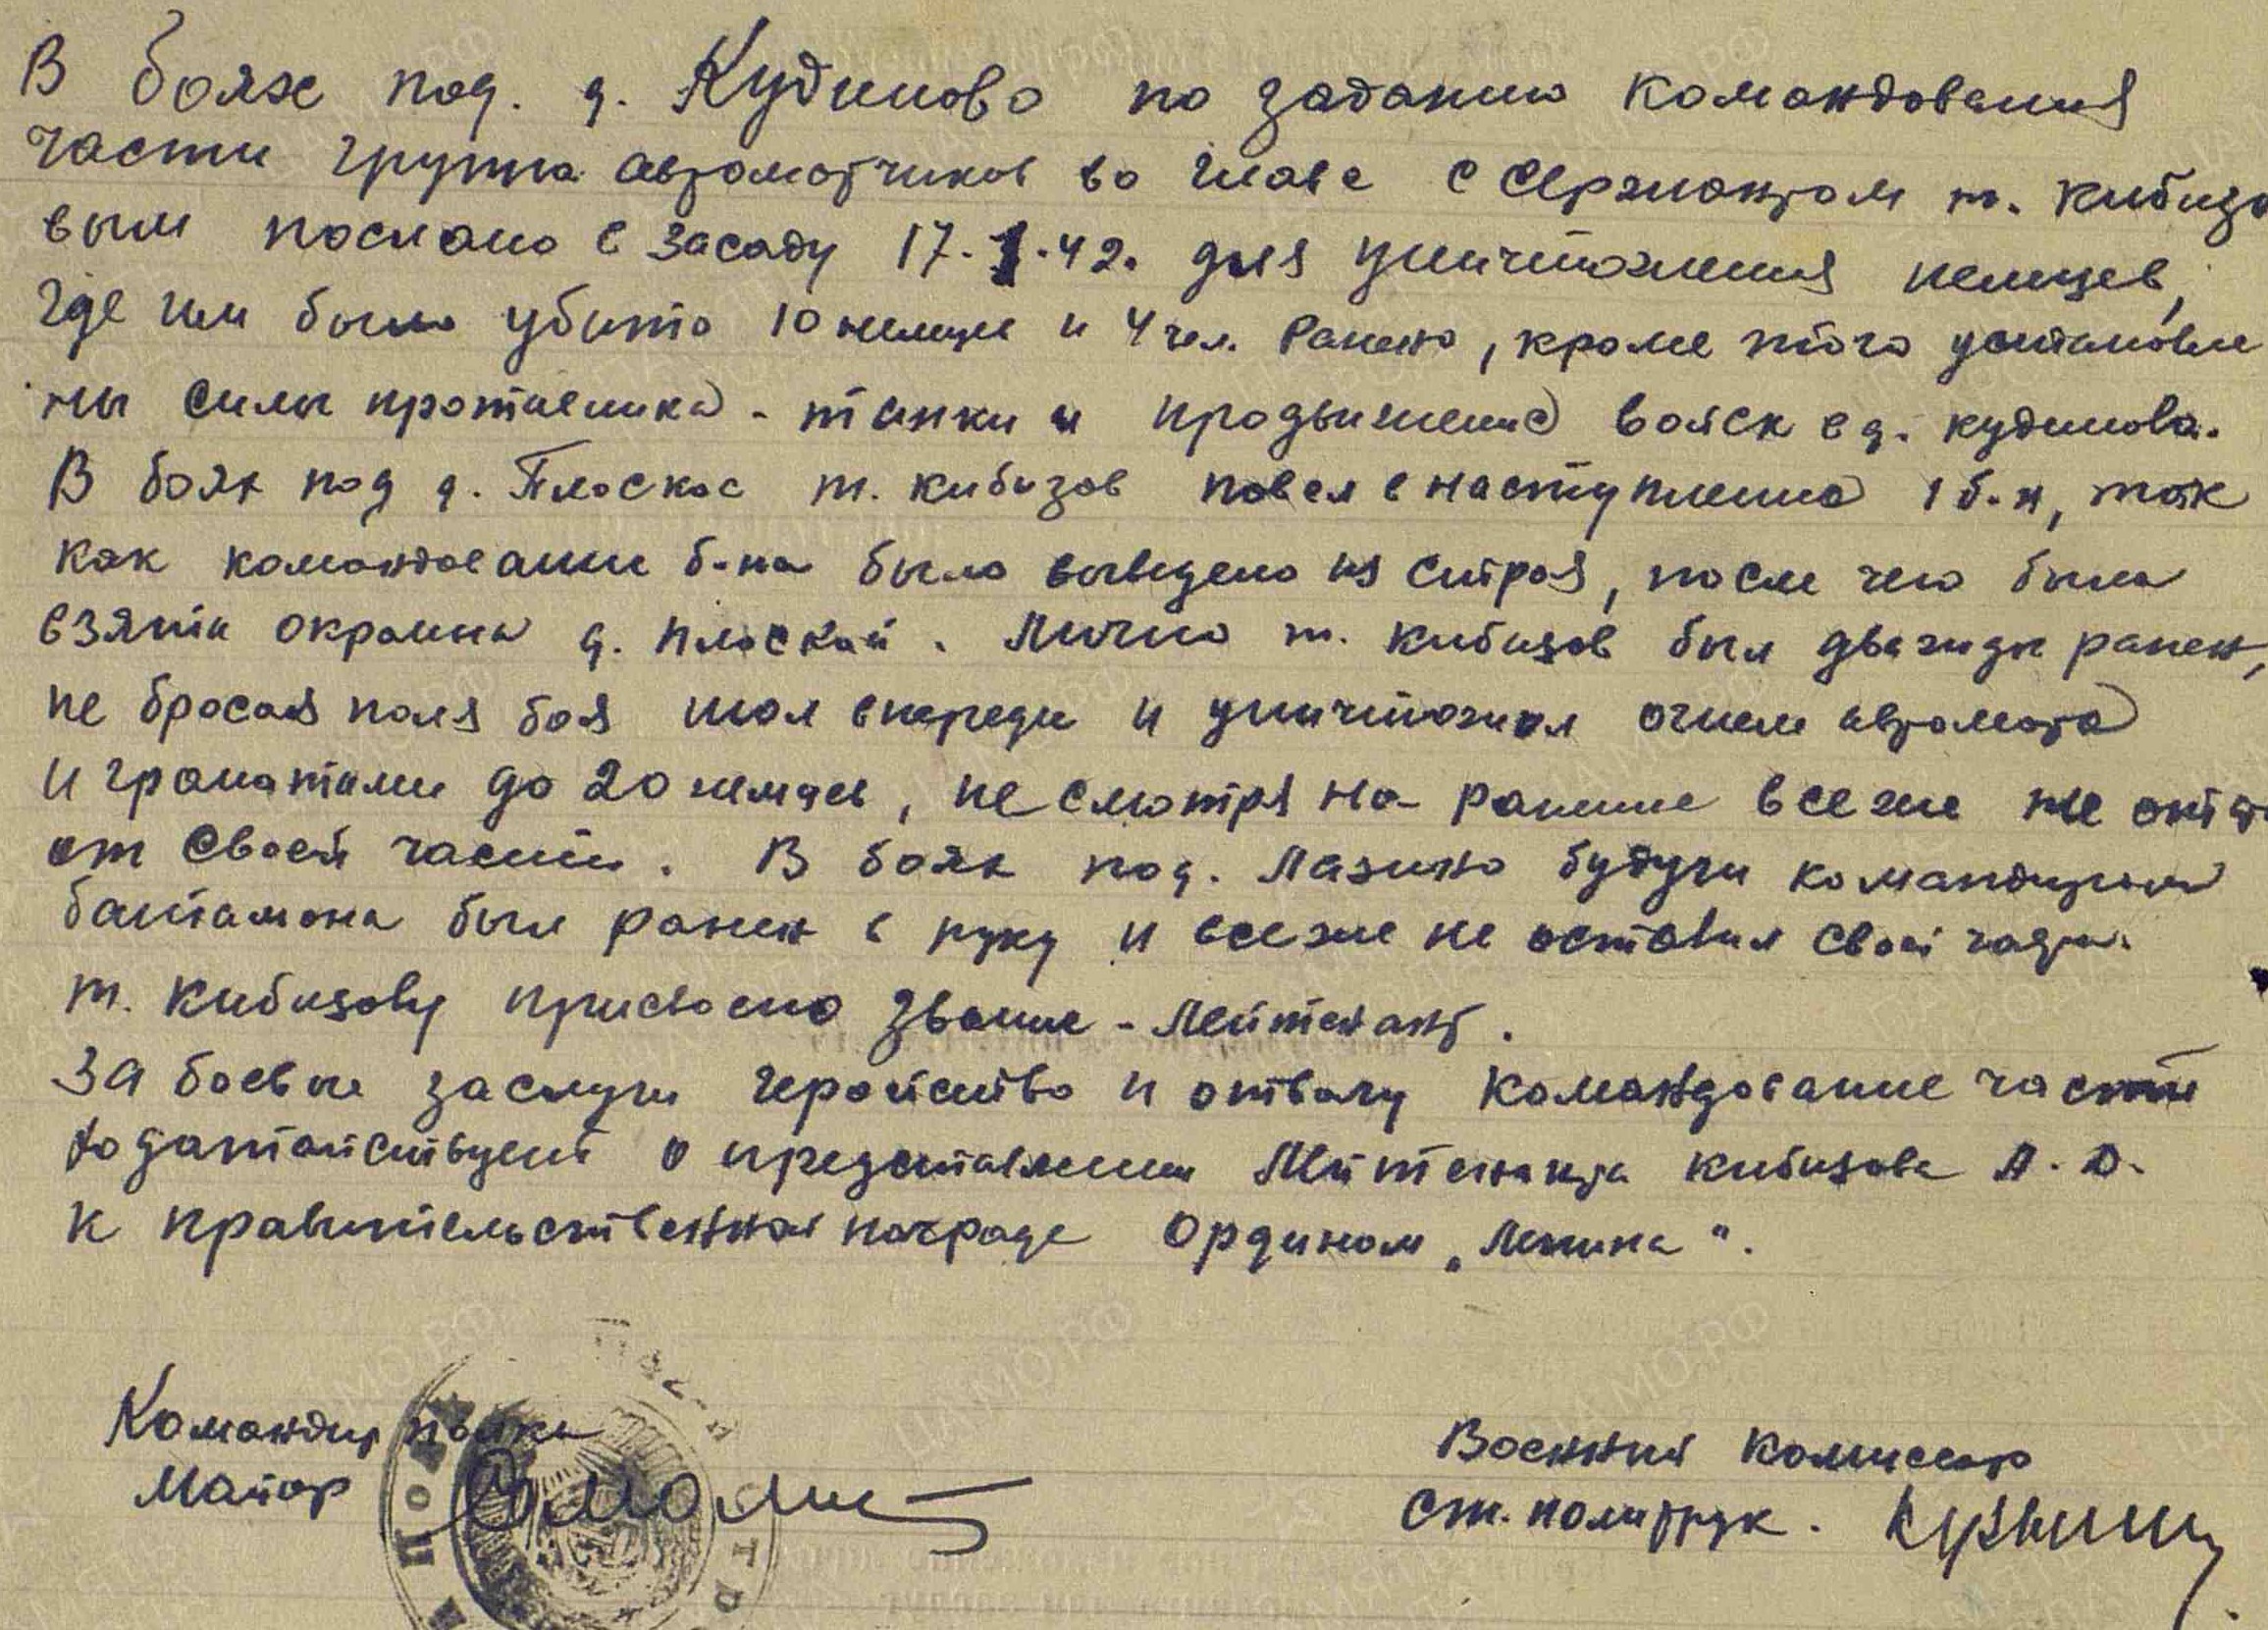 В боях под. д. Кудиново по заданию командования
части группа автоматчиков во главе с сержантом т. Кибизо
вым послана в засаду 17.1.42. для уничтожения немцев,
где им было убито 10 немцев и 4 чел. ранено, кроме того установле
ны силы противника - танки и продвижение войск в д. Кудинова.
В боях под д. Плоское т. Кибизов повел в наступление 1 б-н, так
как командование б-на было выведено из строя, после чего была
взята окраина д. Плоской. Лично т. Кибизов был дважды ранен,
не бросая поля боя шол впереди и уничтожил огнем автомата
и гранатами до 20 немцев, не смотря на ранние все же не
от своей части. В боях под. Лазино будучи командиром
баталиона был ранен в руку и все же не оставил свой части.
т. Кибизову присвоено звание - лейтенант.
За боевые заслуги геройство и отвагу командование части
ходатайствует о представлении лейтенанта Кибизова А. Д.
к правительственной награде Орденом „Ленина".
Командир полка
Майор
Военный комиссар
Ст. политрук.